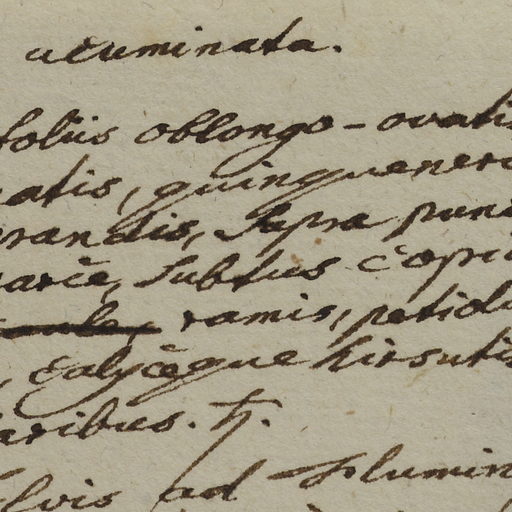 acuminata.
foliis oblongo-ovatis
atis, quinquenerv
randis, supra punc
subtus copio
ramis, petiol
, calyceque hirsutis
aribus. ♄.
ad flumin